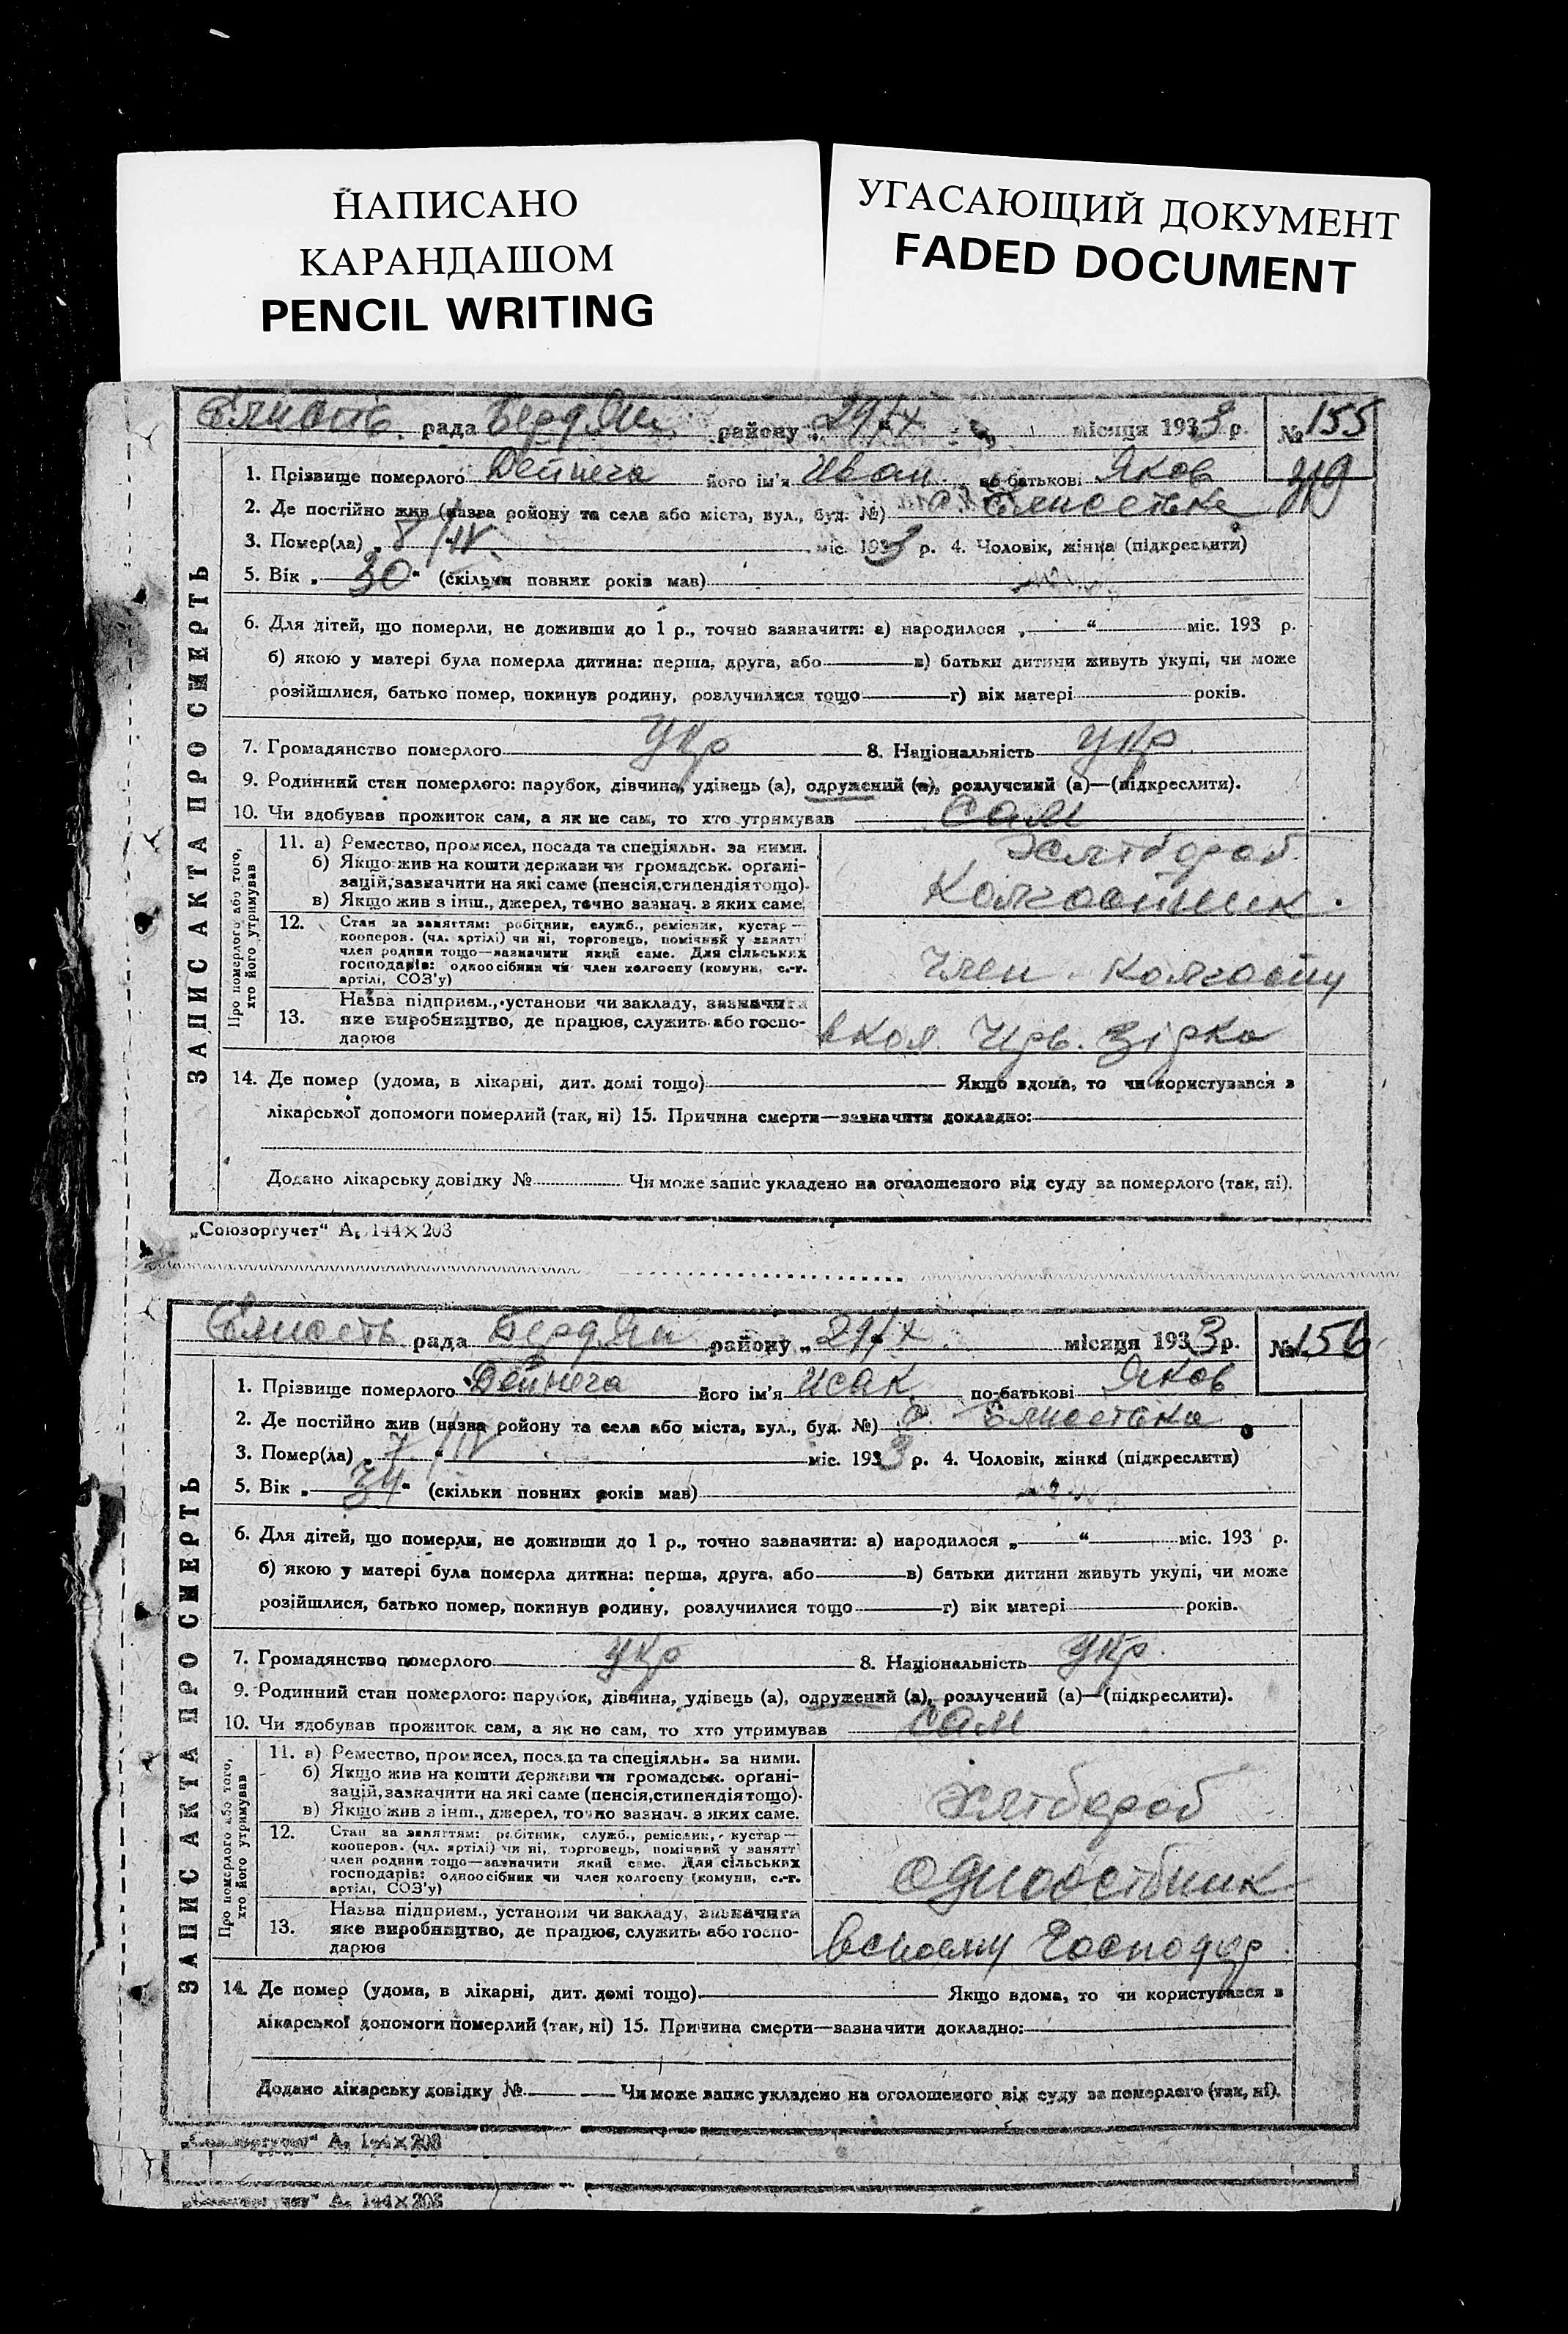 НАПИСАНО
КАРАНДАШОМ
PENCIL WRITING
УГАСАЮЩИЙ ДОКУМЕНТ
FADED DOCUMENT
рада Бердян району „29/IX місяця 1933 р. № 155
1. Прізвище померлого Дейнега його ім'я Иван по батькові Яков 319
2. Де постійно жив (назва району та села або міста, вул., буд. №) с.
3. Помер(ла) „8/IV міс. 1933 р. 4. Чоловік, жінка (підкреслити)
5. Вік „30“ (скільки повних років мав)
6. Для дітей, що померли, не доживши до 1 р., точно зазначити: а) народилося „ “ міс. 193 р.
б) якою у матері була померла дитина: перша, друга, або в) батьки дитини живуть укупі, чи може
розійшлися, батько помер, покинув родину, розлучилися тощо г) вік матері років.
7. Громадянство померлого Укр 8. Національність укр
9. Родинний стан померлого: парубок, дівчина, удівець (а), одружений (а), розлучений (а)—(підкреслити).
10. Чи здобував прожиток сам, а як не сам, то хто утримував сам
ЗАПИС АКТА ПРО СМЕРТЬ
Про померлого або того, хто його утримував
11. а) Ремество, промисел, посада та спеціяльн. за ними.
б) Якщо жив на кошти держави чи громадськ. орґані-
зацій, зазначити на які саме (пенсія, стипендія тощо).
в) Якщо жив з інш., джерел, точно зазнач. з яких саме.
Хлібороб
Колгоспник.
12. Стан за заняттям: робітник, служб., ремісник, кустар—
кооперов. (чл. артілі) чи ні, торговець, помічний у занятт
член родини тощо—зазначити який саме. Для сільських
господарів: одноосібник чи член колгоспу (комуни, с.-г.
артілі, СОЗ'у)
Член колгоспу
13. Назва підприєм., установи чи закладу, зазначити
яке виробництво, де працює, служить або госпо-
дарює
в кол. Чрв. Зірка
14. Де помер (удома, в лікарні, дит. домі тощо) Якщо вдома, то чи користувався з
лікарської допомоги померлий (так, ні) 15. Причина смерти—зазначити докладно:
Додано лікарську довідку № Чи може запис укладено на оголошеного від суду за померлого (так, ні).
„Союзоргучет“ А₅ 144×203
рада Бердян району „29/IX місяця 1933 р. № 156
1. Прізвище померлого Дейнега його ім'я Исак по-батькові Яков
2. Де постійно жив (назва району та села або міста, вул., буд. №) с.
3. Помер(ла) „7/IV міс. 1933 р. 4. Чоловік, жінка (підкреслити)
5. Вік „34“ (скільки повних років мав)
6. Для дітей, що померли, не доживши до 1 р., точно зазначити: а) народилося „ “ міс. 193 р.
б) якою у матері була померла дитина: перша, друга, або в) батьки дитини живуть укупі, чи може
розійшлися, батько помер, покинув родину, розлучилися тощо г) вік матері років.
7. Громадянство померлого укр 8. Національність укр.
9. Родинний стан померлого: парубок, дівчина, удівець (а), одружений (а), розлучений (а)—(підкреслити).
10. Чи здобував прожиток сам, а як не сам, то хто утримував сам
ЗАПИС АКТА ПРО СМЕРТЬ
Про померлого або того, хто його утримував
11. а) Ремество, промисел, посада та спеціяльн. за ними.
б) Якщо жив на кошти держави чи громадськ. орґані-
зацій, зазначити на які саме (пенсія, стипендія тощо).
в) Якщо жив з інш., джерел, точно зазнач. з яких саме.
Хлібороб
12. Стан за заняттям: робітник, служб., ремісник, кустар—
кооперов. (чл. артілі) чи ні, торговець, помічний у занятт
член родини тощо—зазначити який саме. Для сільських
господарів: одноосібник чи член колгоспу (комуни, с.-г.
артілі, СОЗ'у)
одноосібник
13. Назва підприєм., установи чи закладу, зазначити
яке виробництво, де працює, служить або госпо-
дарює
в своєму господар.
14. Де помер (удома, в лікарні, дит. домі тощо) Якщо вдома, то чи користувався з
лікарської допомоги померлий (так, ні) 15. Причина смерти—зазначити докладно:
Додано лікарську довідку № Чи може запис укладено на оголошеного від суду за померлого (так, ні).
„Союзоргучет“ А₅ 144×203
„Союзоргучет“ А₅ 144×203